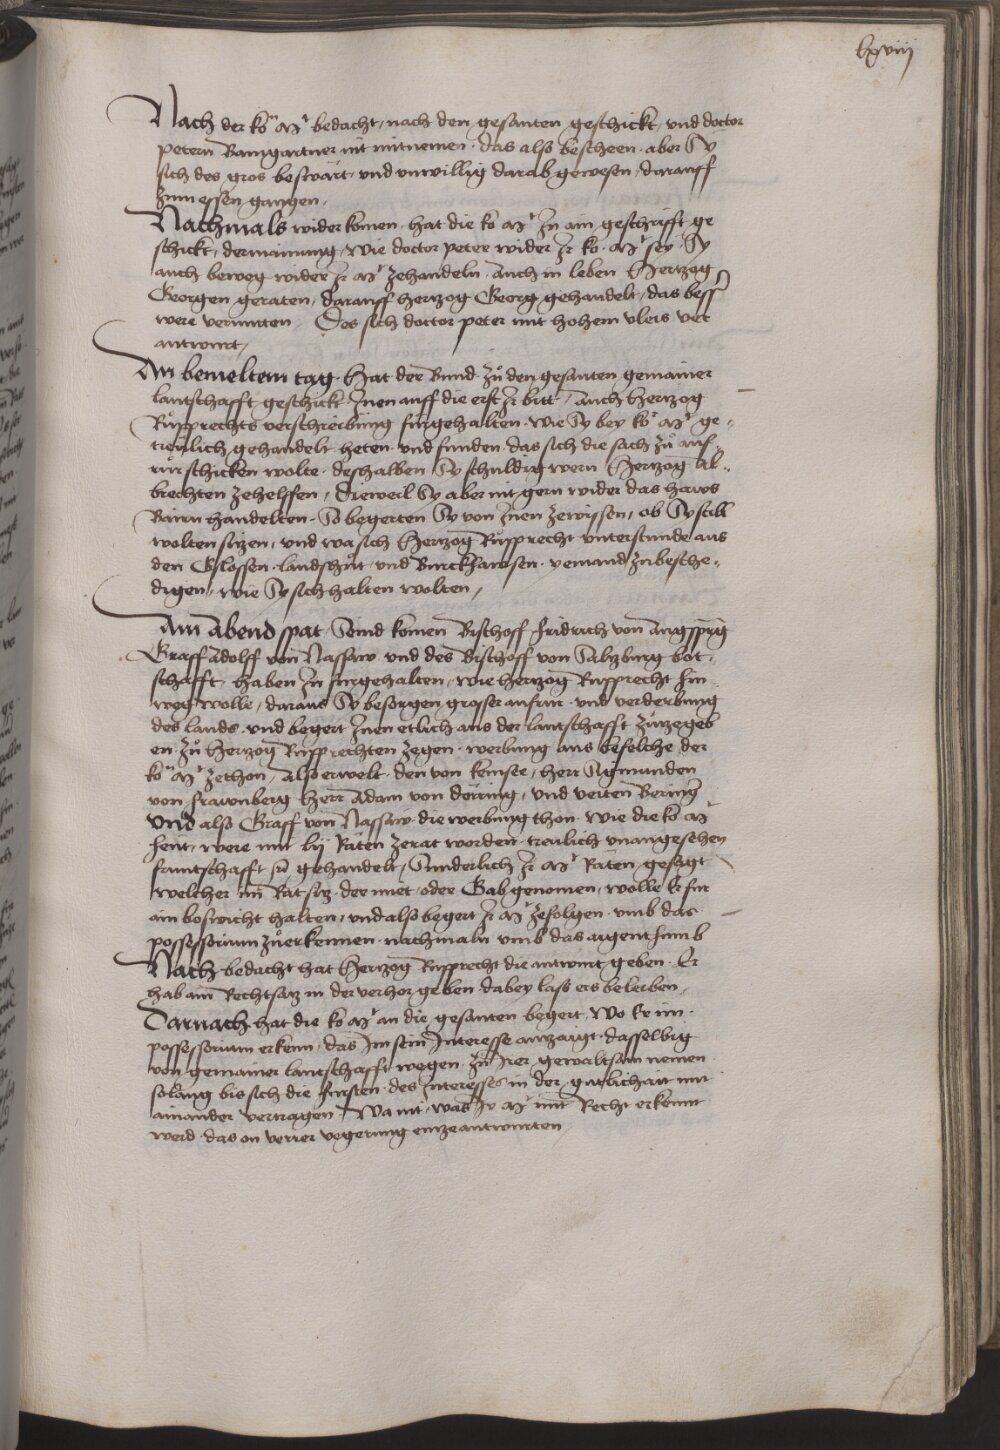 lxviij
Nach der ko͞n Mt bedacht, nach den gesanten geschickt, und doctor
petern Baumgartner nit mitnemen. das also bescheen. aber Sy
sich des gros beswärt, und unwillig darab gewesen, darauff
zum essen gangen,
Nachmals wider komen, hat die ko Mt In ain geschrifft ge
schickt, der mainung, wie doctor peter wider Ir ko. Mt sey. Sy
auch beweg wider Ir Mt zehandeln. Auch in leben Hertzog
Georgen geraten, darauff hertzog Georg gehandelt, das besser
were vermiten, Des sich doctor peter mit hohem vleis ver
antwurt,
An bemeltem tag. Hat der Bund. zu den gesanten gemainer
lantschafft geschickt Inen auff die erst Ir bitt, Auch Hertzog
Rupprechts verschreibung furgehalten. wie Sy bey ko Mt ge-
treulich gehandelt heten. und funden. das sich die sach zu auf
rur schicken wolte. deshalben Sy schuldig wern Hertzog Al-
brechten zehelffen, Dieweil Sy aber nit gern wider das haws
Bairn handelten. So begerten Sy von Inen zewissen, ob Sy still
wolten sitzen, und wa sich Hertzog Rupprecht unterstunde aus
den Slossen. landshut und Burckhausen. yemand zubesche-
digen, wie Sy sich halten wolten,
Am Abend spat. Seind komen Bischoff Fridrich von Augspurg
Graff Adolff von Nassaw. und des Bischoff von Saltzburg bot-
schafft. haben In furgehalten, wie hertzog Rupprecht hin
weg wolle, daraus Sy besorgen grosser aufrur. und verderbung
des lands. und begert Inen etlich aus der lantschafft zuzegeb
en. zu Hertzog Rupprechten zegen. werbung aus befelche der
ko͞n Mt zethon, Also erwelt. den von kemsee, herr Sigmunden
von Frawenberg Herr Adam von dörring, und veiten
und also Graff von Nassaw. die werbung thon. wie die ko Mt
heut, were mit lij Räten zerat worden. treulich unangesehen
frauntschafft zu gehandelt, Sunderlich Ir Mt Räten gesagt
welcher im Rat sitz. der miet, oder Gab genomen, wolle Er fur
ain boswicht halten, und also begert Ir Mt zefolgen. umb das
possessorium zuerkennen. nachmaln umb das aigenthumb
Nach bedacht hat Hertzog Rupprecht die antwurt geben. Er
hab ain Rechtsatz in der verhor geben. dabey lass ers beleiben,
Darnach hat die ko Mt an die gesanten begert. Wo Er im.
possessorium erkenn, das Im sein Interesse antzaigt. dasselbig
von gemainer lantschafft wegen. zu Irer gewaltsam nemen
solang bis sich die fursten. des Interesses in der gutlichait mit
ainander vertragen. Wa nit, was Ir Mt mit Recht erkennt
werd. das on verrer wegerung einzeantwurten